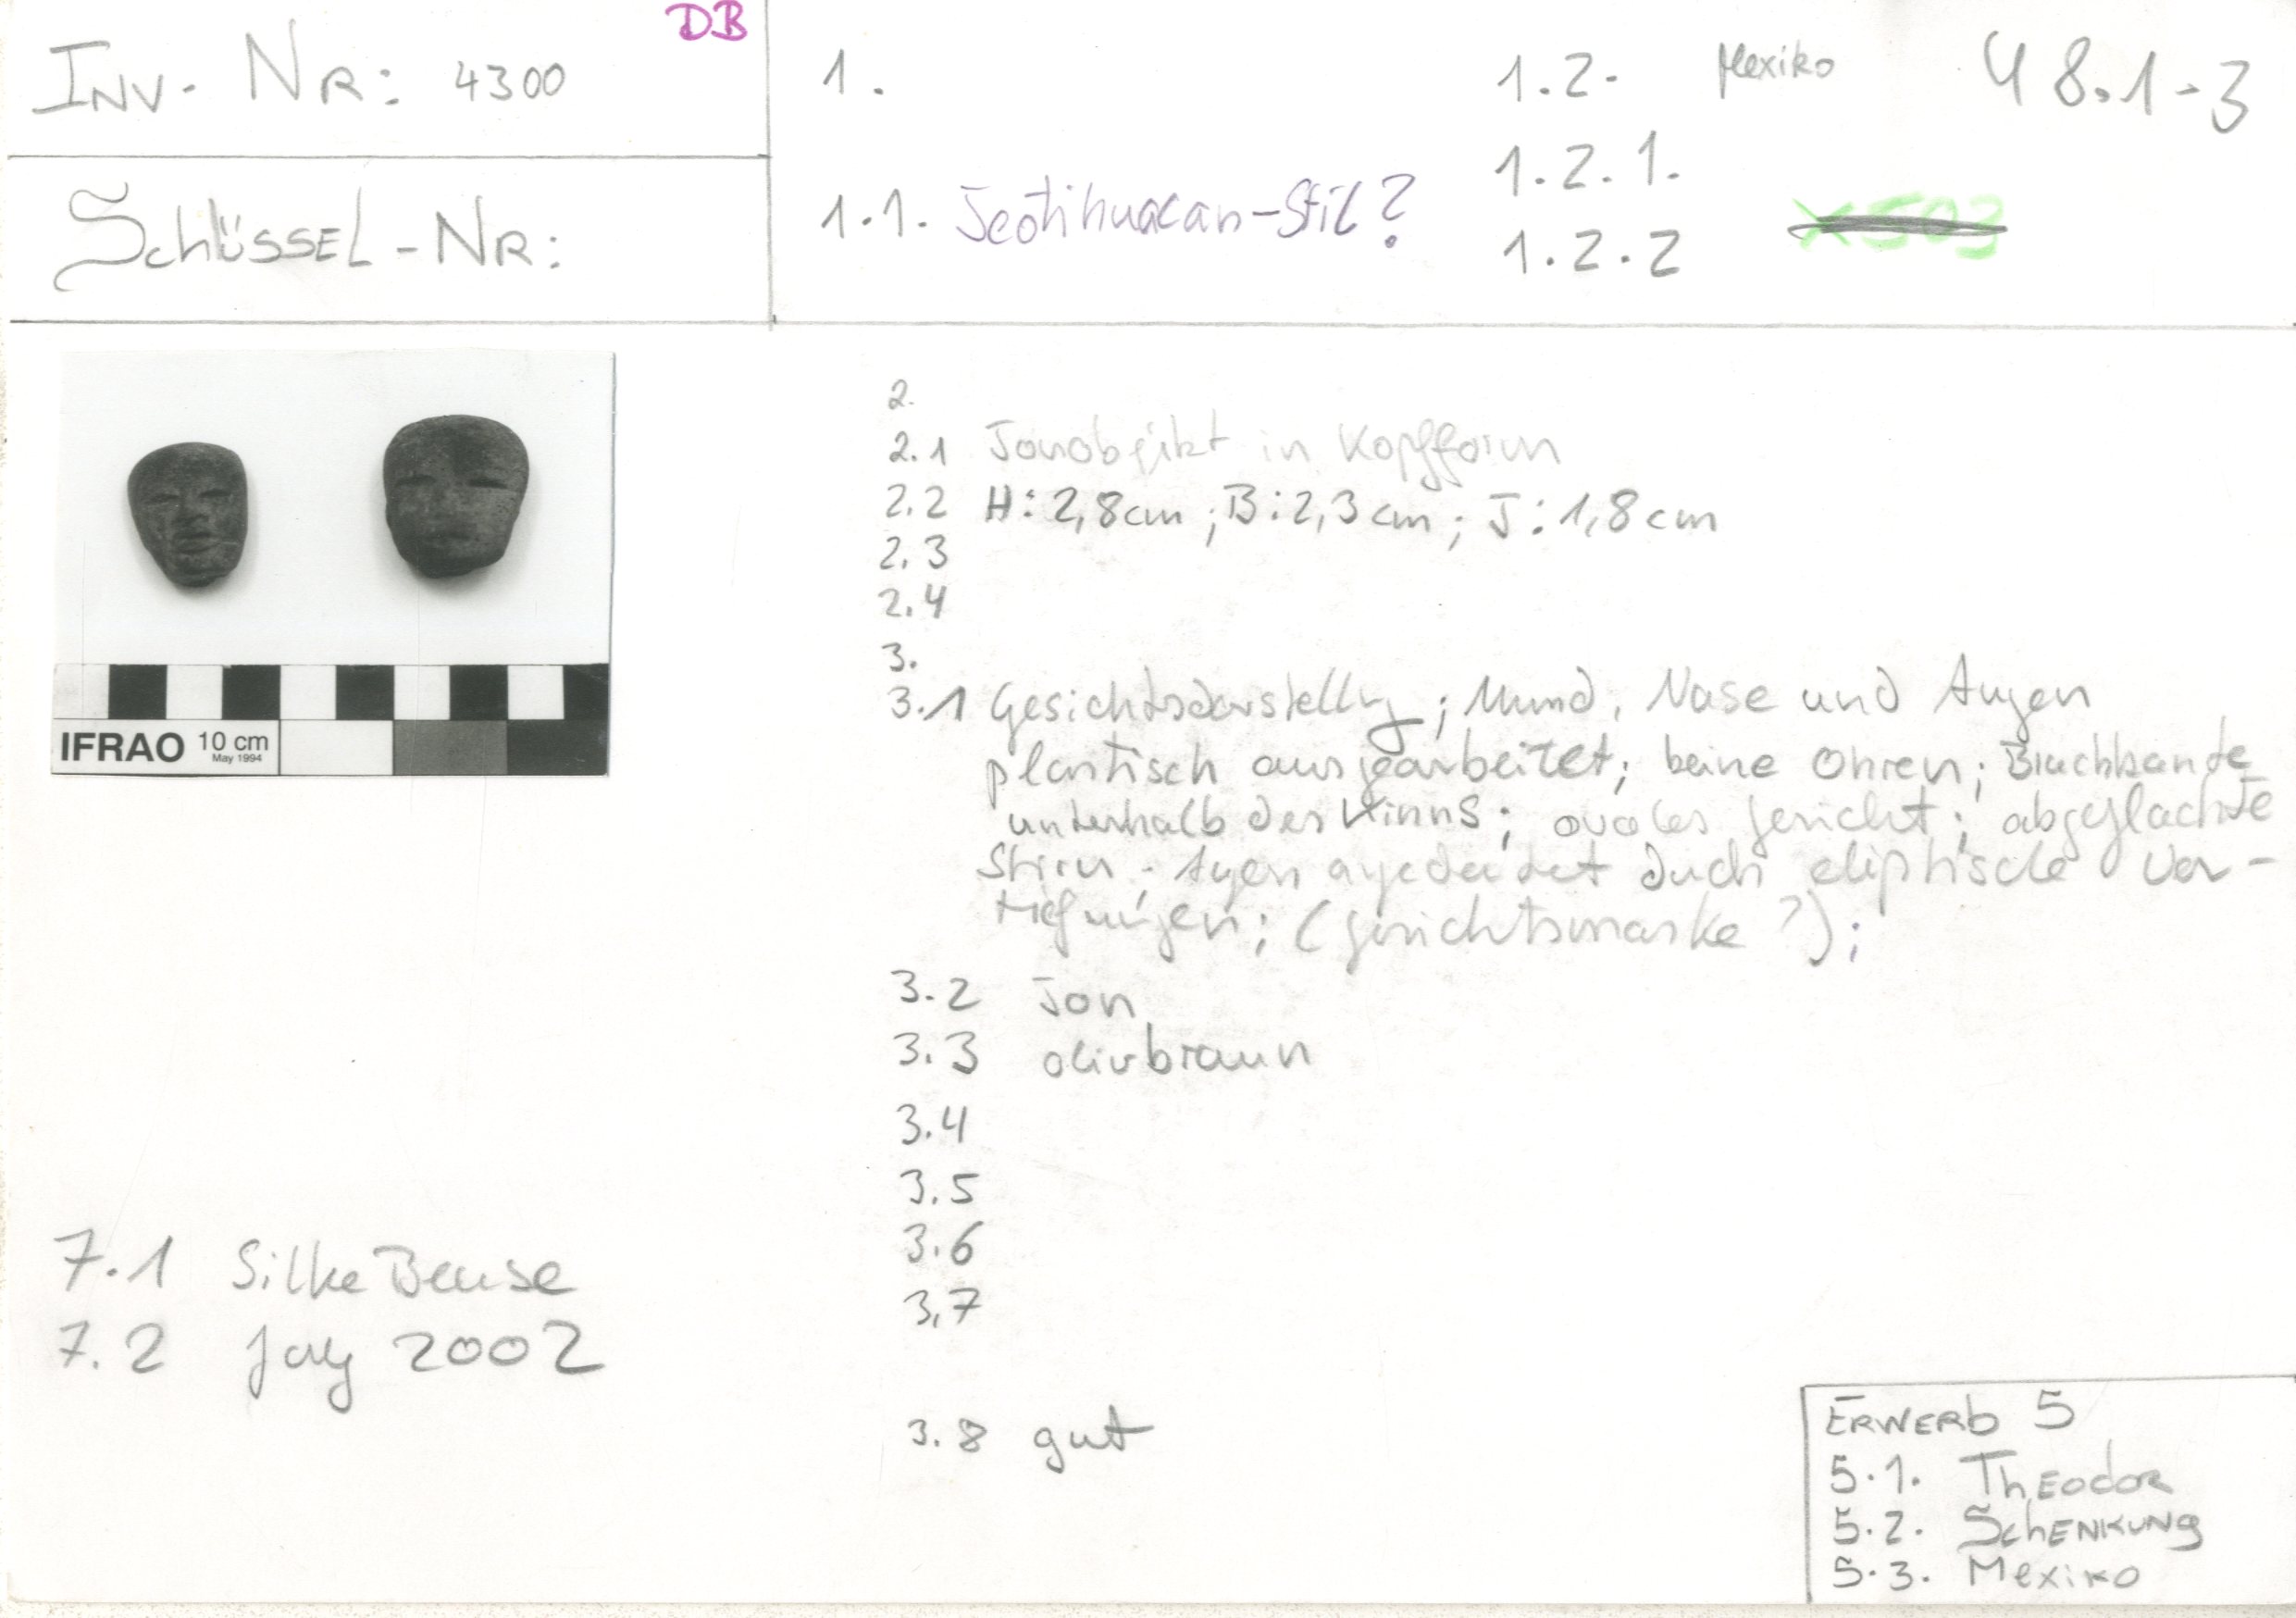 DB
INV. NR: 4300
SCHLÜSSEL-NR:
1.
1.1. Teotihuacan-Stil?
1.2. Mexiko
1.2.1.
1.2.2
48.1-3
X503
IFRAO 10 cm
May 1994
2.
2.1 Tonobjekt in Kopfform
2.2 H: 2,8cm; B: 2,3cm; T: 1,8cm
2.3
2.4
3.
3.1 Gesichtsdarstellg; Mund, Nase und Augen
plastisch ausgearbeitet; keine Ohren; Bruchkante
unterhalb des Kinns; ovales Gesicht; abgeflachte
Stirn; Augen angedeutet durch eliptische Ver-
tiefungen; (Gesichtsmaske?);
3.2 Ton
3.3 olivbraun
3.4
3.5
3.6
3,7
3.8 gut
7.1 Silke
7.2 2002
ERWERB 5
5.1. THEODOR
5.2. SCHENKUNG
5.3. MEXIKO